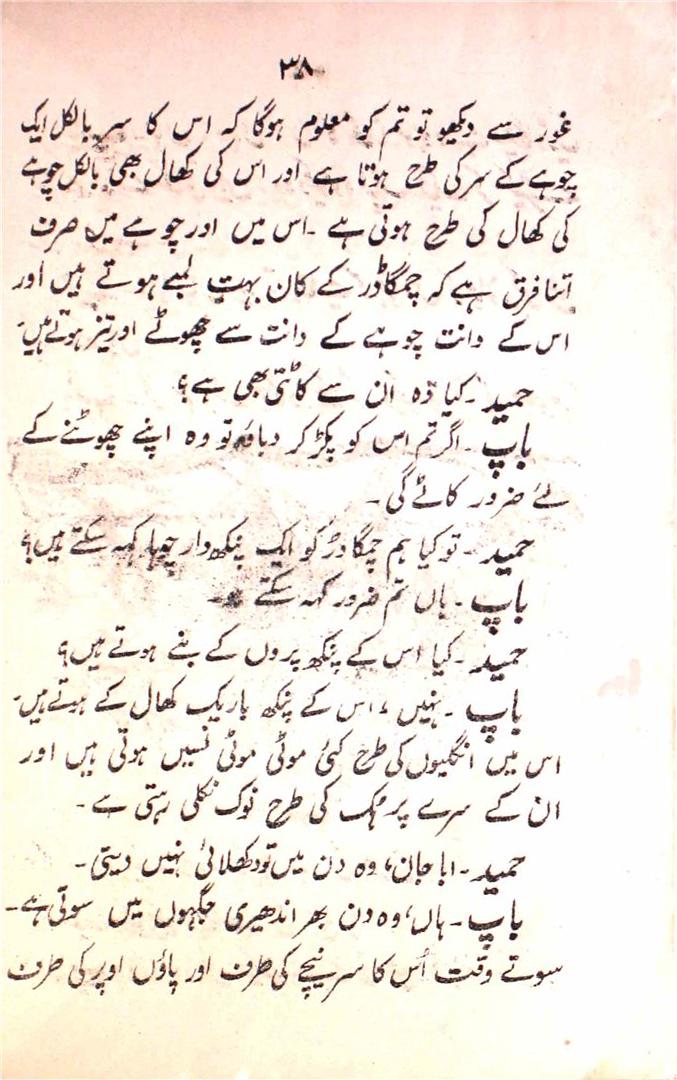 ۳۸
غور سے دیکھو تو تم کو معلوم ہوگا کہ اس کا سر بالکل ایک
چوہے کے سر کی طرح ہوتا ہے اور اس کی کھال بھی بالکل چوہے
کی کھال کی طرح ہوتی ہے ۔ اس میں اور چوہے میں صرف
اتنا فرق ہے کہ چمگاڈر کے کان بہت لمبے ہوتے ہیں اور
اس کے دانت چوہے کے دانت سے چھوٹے اور تیز ہوتے ہیں۔
حمید ۔ کیا وہ ان سے کاٹتی بھی ہے؟
باپ ۔ اگر تم اس کو پکڑ کر دباؤ تو وہ اپنے چھوٹنے کے
لئے ضرور کاٹے گی ۔
حمید ۔ تو کیا ہم چمگادڑ کو ایک پنکھ دار چوہا کہہ سکتے ہیں؟
باپ ۔ ہاں تم ضرور کہہ سکتے
حمید ۔ کیا اس کے پنکھ پروں کے بنے ہوتے ہیں؟
باپ ۔ نہیں، اس کے پنکھ باریک کھال کے ہوتے ہیں۔
اس میں انگلیوں کی طرح کئی موٹی موٹی نسیں ہوتی ہیں اور
ان کے سرے پر ہک کی طرح نوک نکلی رہتی ہے ۔
حمید ۔ ابا جان، وہ دن میں تو دکھلائی نہیں دیتی ۔
باپ ۔ ہاں، وہ دن بھر اندھیری جگہوں میں سوتی ہے ۔
سوتے وقت اُس کا سر نیچے کی طرف اور پاؤں اوپر کی طرف